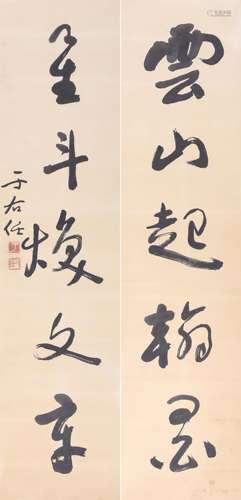 雲山起翰墨
星斗煥文章
于右任